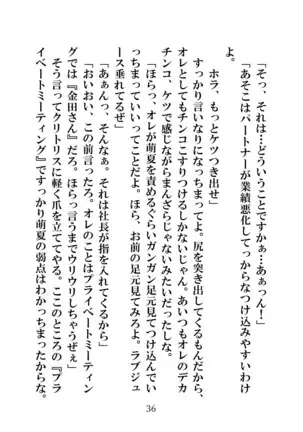 「そっ、それは…どういうことですかぁ…あぁっん！」
「あそこはパートナーが業績悪化してっからなつけ込みやすいわけ
よ。
ホラ、もっとケツつき出せ」
すっかり言いなりになっちまってよ。尻を突き出してくるもんだから、
オレとしてもチンコこすりつけるしかないじゃん。あいつもオレのデカ
チンコ、ケツで感じながらまんざらじゃないみたいだしな。
「ほらっ、オレが萌夏を責めるぐらいガンガン足元見てつけ込んでい
っちまっていいってことだよ。ほら、お前の足元見てみろよ。ラブジュ
ース垂れてるぜ」
「あぁんっ、そんなぁ。それは社長が指を入れてくるから」
「おいおい、この前言ったろ。オレのことはプライベートミーティン
グでは『金田さん』だろ。ほらっ言うまでウリウリしちゃうぜぇ」
そう言ってクリトリスに軽く爪を立ててやる。ここのところの『プラ
イベートミーティング』ですっかり萌夏の弱点はわかっちまったからな。
36